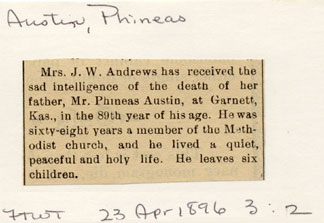 Austin, Phineas
Mrs. J. W. Andrews has received the
sad intelligence of the death of her
father, Mr. Phineas Austin, at Garnett,
Kas., in the 89th year of his age. He was
sixty-eight years a member of the Meth-
odist church, and he lived a quiet,
peaceful and holy life. He leaves six
children.
HWT 23 Apr 1896 3:2